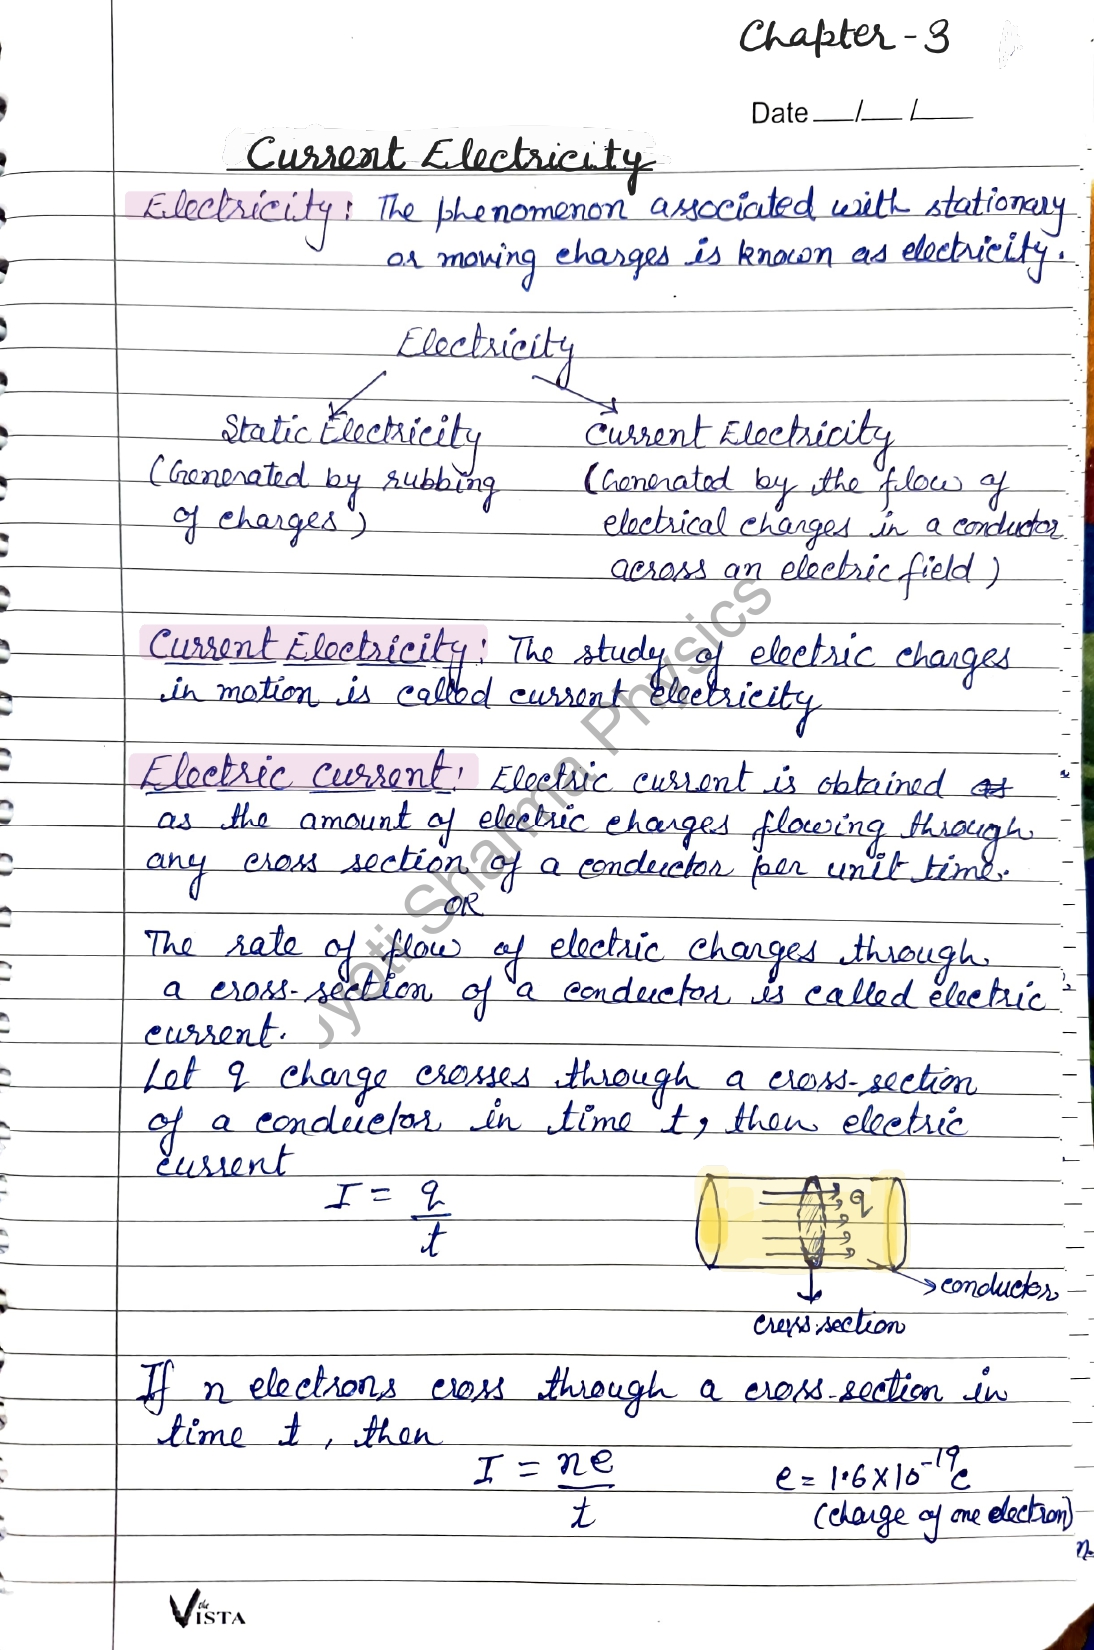 Chapter - 3
Date __/__/__
Current Electricity
Electricity: The phenomenon associated with stationary
or moving charges is known as electricity.
Electricity
Static Electricity
(Generated by rubbing
of charges)
Current Electricity
(Generated by the flow of
electrical charges in a conductor
across an electric field)
Current Electricity: The study of electric charges
in motion is called current electricity
Electric current: Electric current is obtained
as the amount of electric charges flowing through
any cross section of a conductor per unit time.
OR
The rate of flow of electric charges through
a cross-section of a conductor is called electric
current.
Let q charge crosses through a cross-section
of a conductor in time t, then electric
current
I = q/t
q
conductor
cross-section
If n electrons cross through a cross-section in
time t, then
I = ne/t
e = 1.6×10⁻¹⁹C
(charge of one electron)
Jyoti Sharma Physics
the VISTA